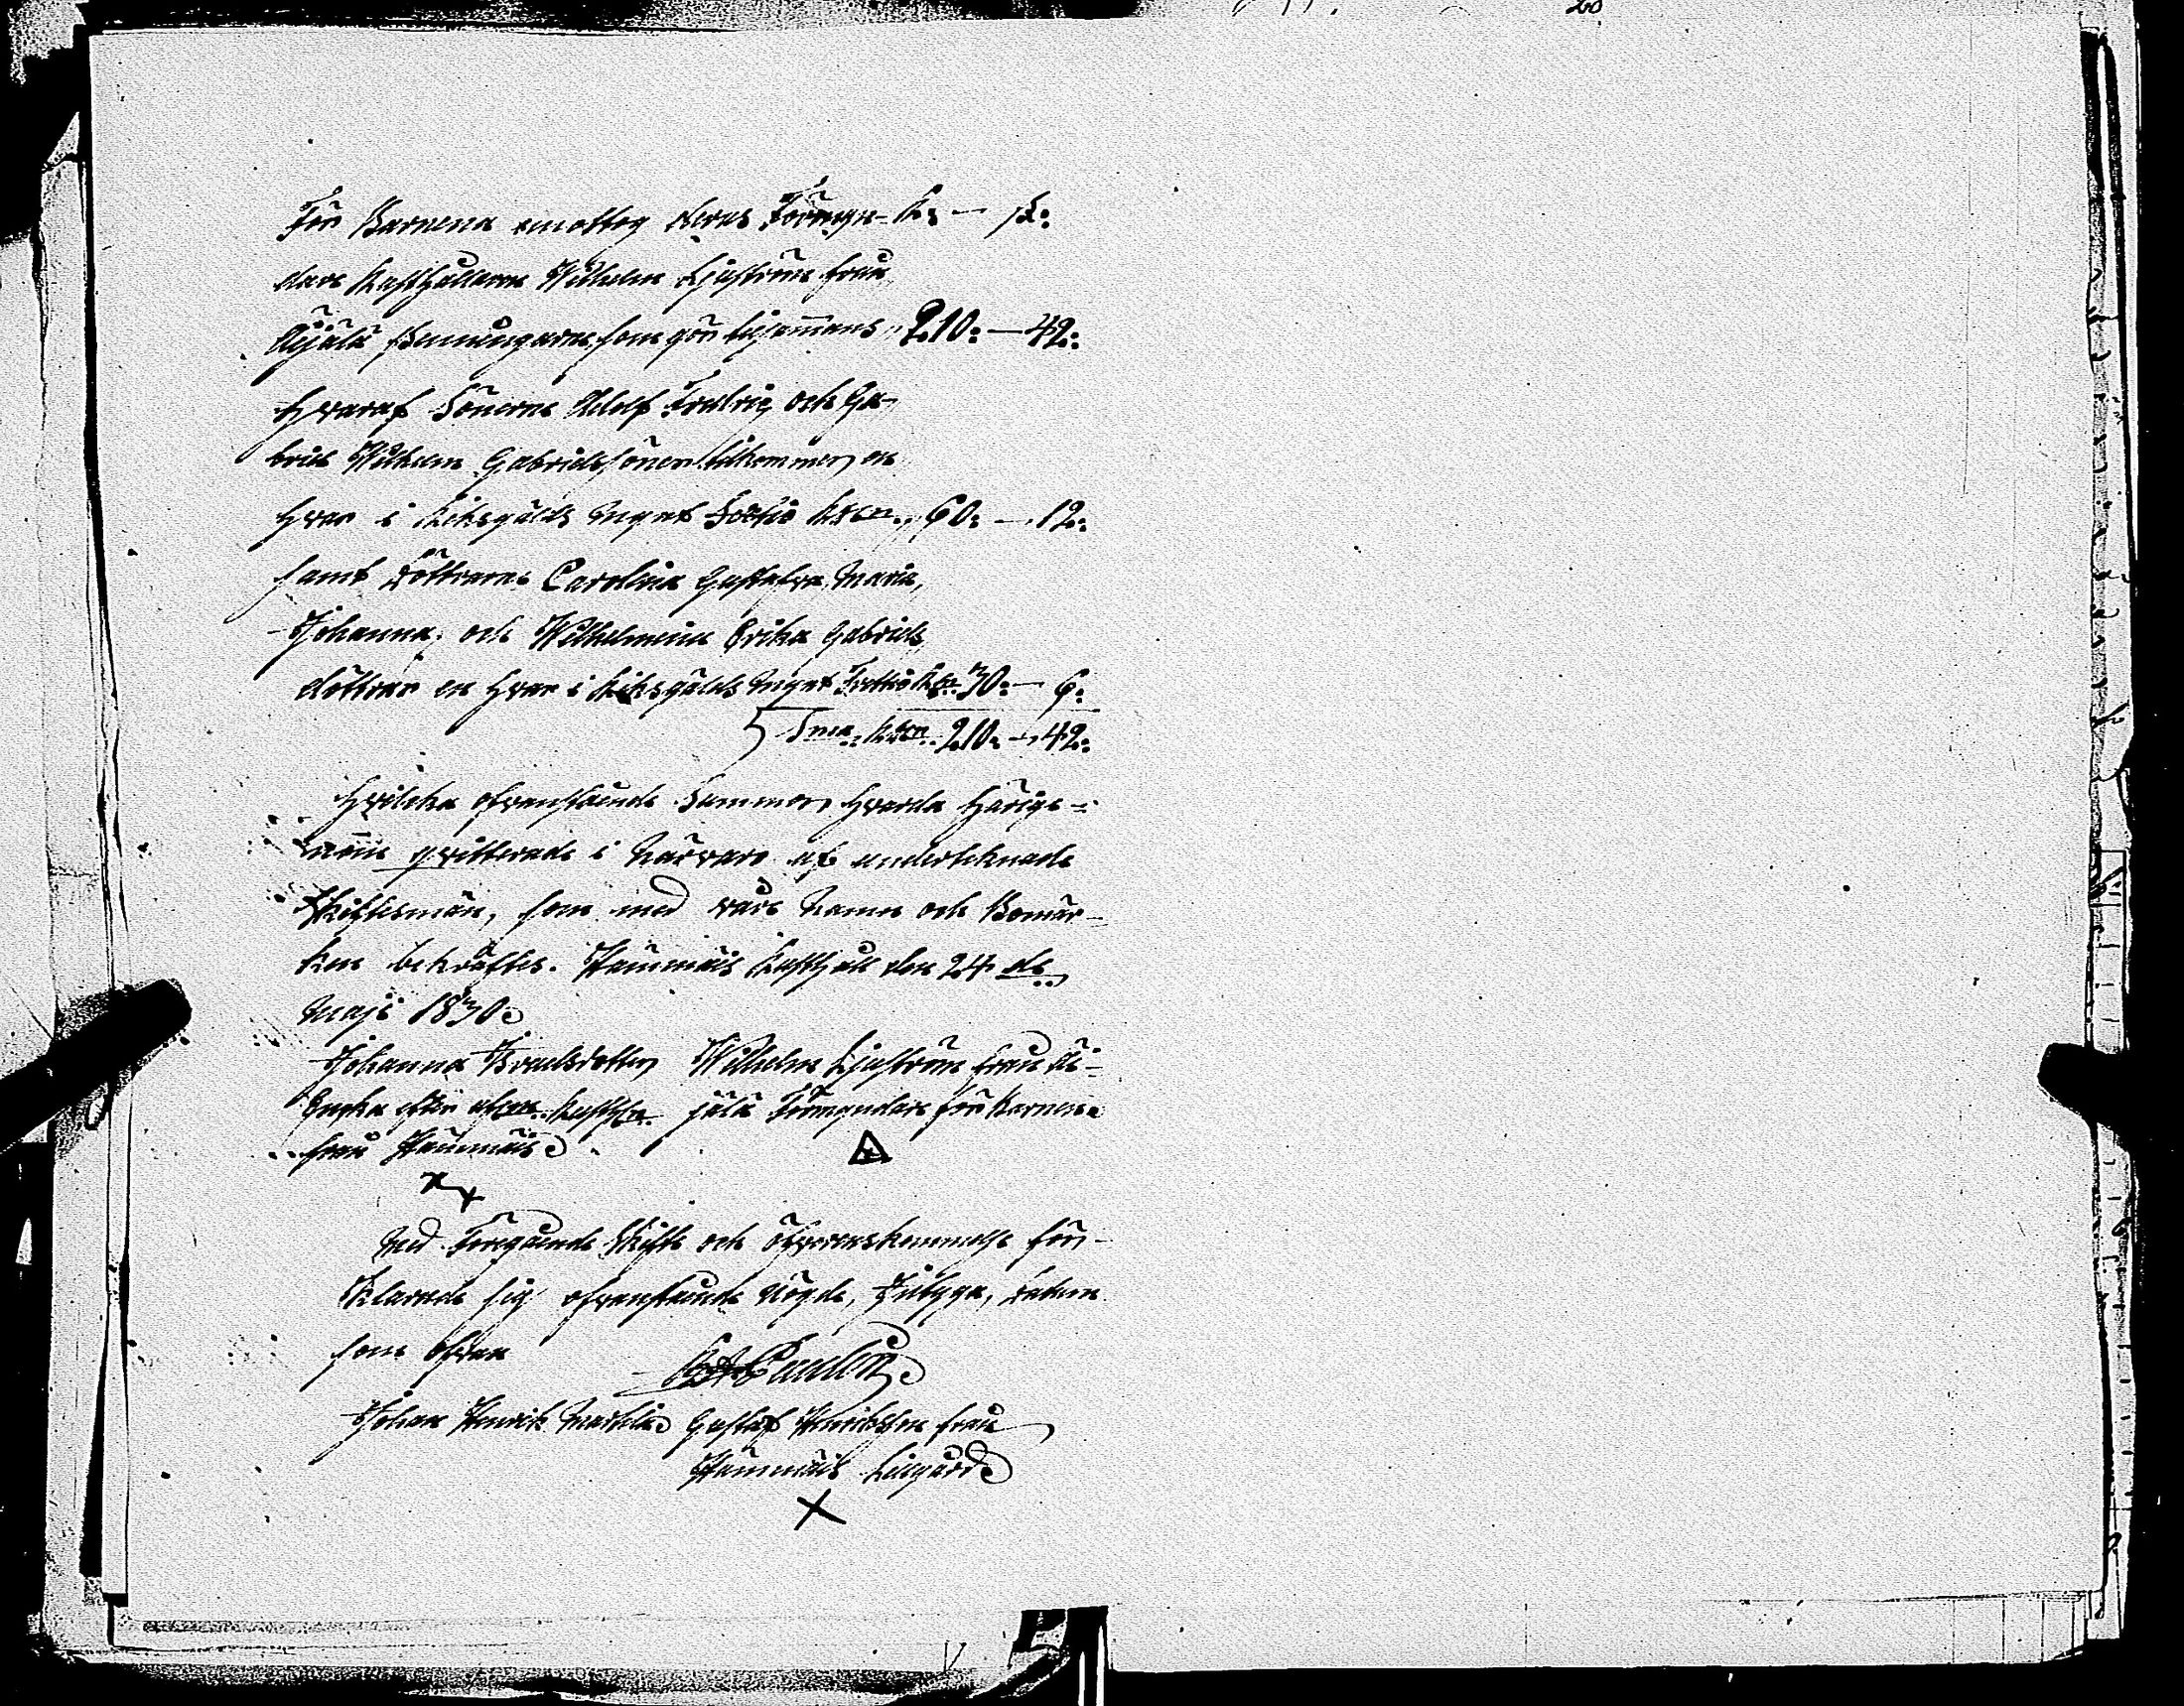 För Barnena emottog deras Förmyn- R: — s:
dare Rusthållaren Wilhelm Ljuström från
Äijälä penningarne, som gör tilsammans " 210: — 42:
hvaraf Sönerne Adolf Fredric och Ga-
briel Wilhelm Gabrielssöner tilkommer en
hvar i Riksgälds mynt Sextio 60: — 12:
samt Döttrarne Carolina Gustafva, Maria,
Johanna, och Wilhelmina Erika Gabriels
döttrar en hvar i Riksgälds mynt Trettio 30: — 6:
S:ma 210: — 42:
Hvilcka ofvanstående Summor hvarda härige-
nom qvitterade i närvaro af undertecknade
Skiftesmän, som med våra Namn och Bomär-
ken bekräftes. Hämmäis Rusthåll den 24 de
Maji 1830.
Johanna Israelsdotter Wilhelm Ljuström från Äi-
Encka efter jälä Förmyndare för Barnena
från Hämmäis
Med Föregående Skifte och öfverenskommelse för-
klarade sig ofvanstående nögde, Intyga, Datum
som ofvan
Johan Henrik Gustaf Henriksson från
Hämmäis Lillgård
X